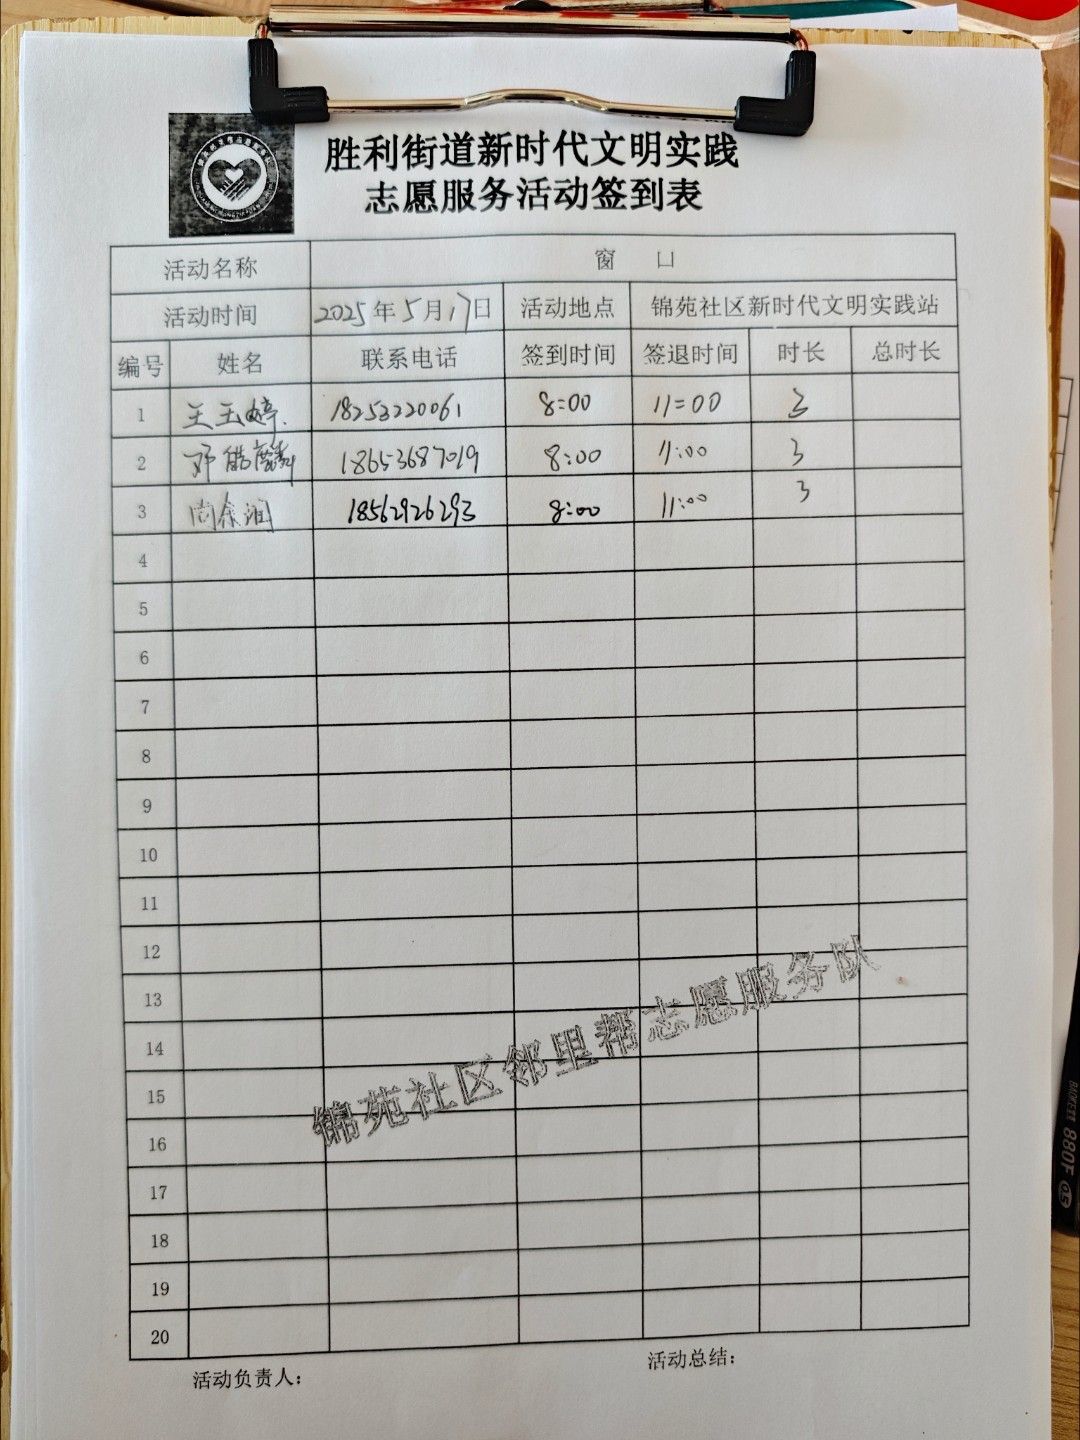 胜利街道新时代文明实践
志愿服务活动签到表
活动名称 窗 口
活动时间 2025年5月17日 活动地点 锦苑社区新时代文明实践站
编号 姓名 联系电话 签到时间 签退时间 时长 总时长
1 王玉婷 18253220061 8:00 11:00 3
2 邓皓麟 18653687019 8:00 11:00 3
3 尚余润 18562926293 8:00 11:00 3
4
5
6
7
8
9
10
11
12
13
14
15
16
17
18
19
20
锦苑社区邻里帮志愿服务队
活动负责人: 活动总结:
BAOKE宝克 880F 0.5